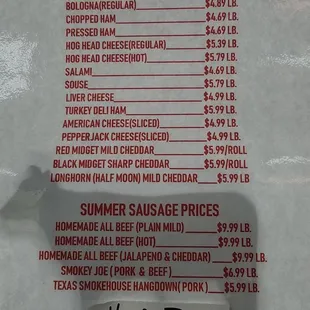 BOLOGNA(REGULAR)____$4.89 LB.
CHOPPED HAM____$4.69 LB.
PRESSED HAM____$4.69 LB.
HOG HEAD CHEESE(REGULAR)____$5.39 LB.
HOG HEAD CHEESE(HOT)____$5.79 LB.
SALAMI____$4.69 LB.
SOUSE____$5.79 LB.
LIVER CHEESE____$4.99 LB.
TURKEY DELI HAM____$5.99 LB.
AMERICAN CHEESE(SLICED)____$4.99 LB.
PEPPERJACK CHEESE(SLICED)____$4.99 LB.
RED MIDGET MILD CHEDDAR____$5.99/ROLL
BLACK MIDGET SHARP CHEDDAR____$5.99/ROLL
LONGHORN (HALF MOON) MILD CHEDDAR____$5.99 LB
SUMMER SAUSAGE PRICES
HOMEMADE ALL BEEF (PLAIN MILD)____$9.99 LB.
HOMEMADE ALL BEEF (HOT)____$9.99 LB.
HOMEMADE ALL BEEF (JALAPENO & CHEDDAR)____$9.99 LB.
SMOKEY JOE ( PORK & BEEF )____$6.99 LB.
TEXAS SMOKEHOUSE HANGDOWN( PORK )____$5.99 LB.